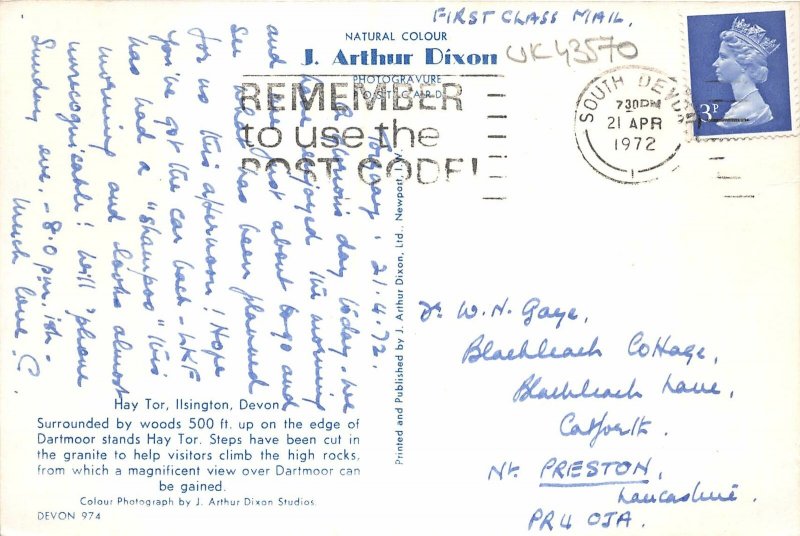 FIRST CLASS MAIL.
NATURAL COLOUR
J. Arthur Dixon
PHOTOGRAVURE
POSTCARD
UK43570
REMEMBER
to use the
POST CODE!
SOUTH DEVON
7 30PM
21 APR
1972
3P
Torquay. 21.4.72.
A glorious day today. We
have enjoyed the morning
and are just about to go and
see what has been planned
for us this afternoon! Hope
you've got the car back - WKF
has had a "shampoo" this
morning and looks almost
unrecognisable! Will 'phone
Sunday eve. - 8.0 p.m. ish -
Much love
Printed and Published by J. Arthur Dixon, Ltd., Newport, I.W.
Dr. W. N. Gaye,
Blackleach Cottage,
Blackleach Lane,
Catforth.
Nr. PRESTON,
Lancashire.
PR4 0JA.
Hay Tor, Ilsington, Devon
Surrounded by woods 500 ft. up on the edge of
Dartmoor stands Hay Tor. Steps have been cut in
the granite to help visitors climb the high rocks,
from which a magnificent view over Dartmoor can
be gained.
Colour Photograph by J. Arthur Dixon Studios.
DEVON 974